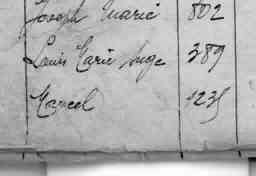 Joseph Marie 802
Louis Marie Ange 389
Marcel 1235